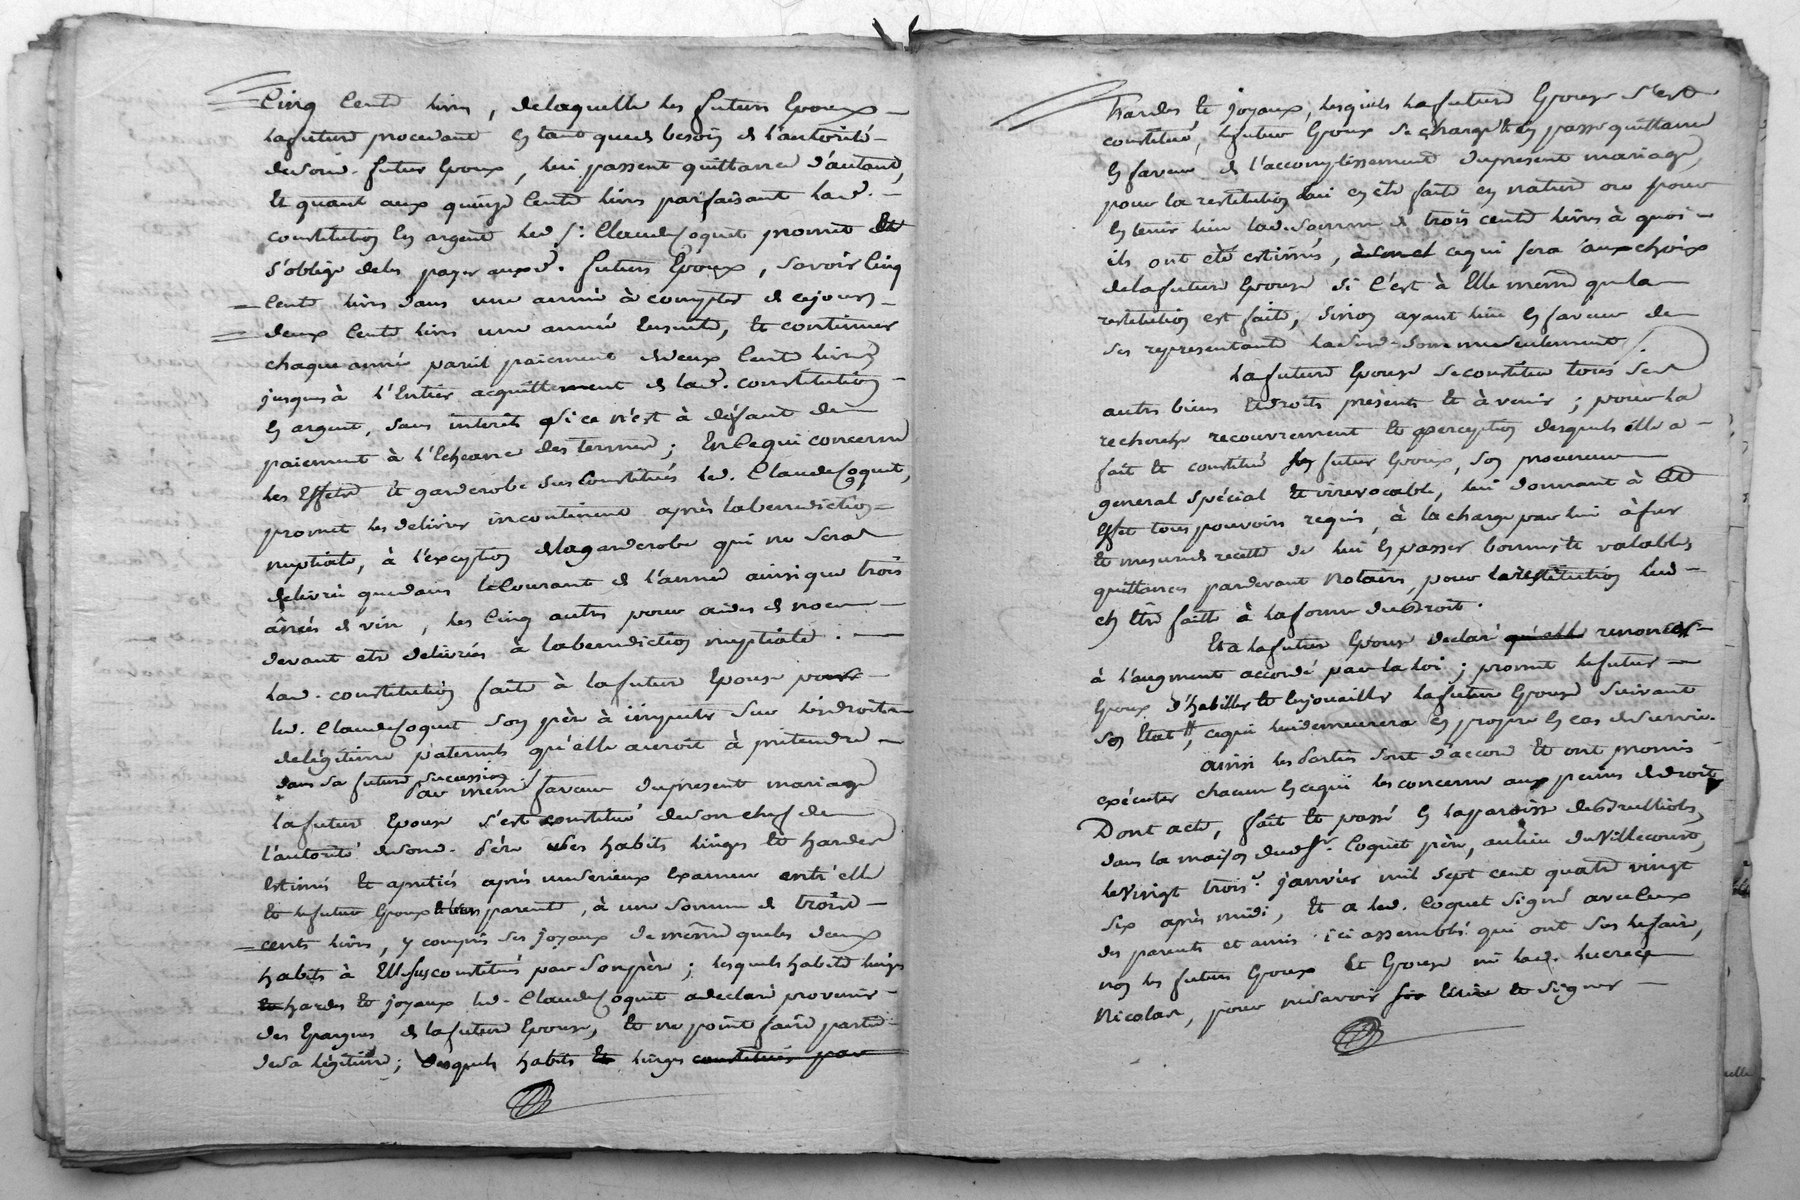 Cinq Cents livres, delaquelle les futurs Epoux
lafuture procedant en tant que de besoin de l'autorité
desond. futur Epoux, lui passent quittance d'autant,
Et quant aux quinze Cents livres parfaisant lad.
constitution en argent led. Sr. Claude Coquet promet et
s'oblige deles payer auxd. futurs Epoux, savoir Cinq
Cents livres dans une année à compter de cejour,
deux Cents livres une année Ensuite, et continuer
chaque année pareil paiement dedeux Cents livres
jusques à l'Entier acquittement de lad. constitution
En argent, sans interêts si ce n'est à défaut de
paiement à l'Echeance des termes; En Cequi concerne
les Effets et garderobe sus Constitués led. Claude Coquet,
promet les delivrer incontinent après labenediction
nuptiale, à l'exception delagarderobe qui ne sera
delivrée quedans leCourant de l'année ainsique trois
ânées de vin, les Cinq autres pour aides de noce
devant etre delivrées à labenediction nuptiale.
lad. constitution faite à lafuture Epouse par
led. Claude Coquet son père à imputer sur lesdroits
delégitime paternels qu'elle auroit à pretendre
dans sa future succession
Par meme faveur dupresent mariage
lafuture Epouse s'est constitué deson chef de
l'autorité desond. Père ses habits linges et hardes
Estimés et apretiés après unserieux Examen entr'elle
Et lefutur Epoux et leurs parents, à une somme de trois
cents livres, y compris ses joyaux de même queles deux
habits à Elle sus constitués par Sonpère; lesquels habits linges
et hardes et joyaux led. Claude Coquet adeclaré provenir
des Epargnes de lafuture Epouse, et ne point faire partie
desa légitime; desquels habits et linges constitués par
hardes et joyaux, lesquels lafuture Epouse s'est
constitué, lefutur Epoux se charge et en passe quittance
En faveur de l'accomplissement dupresent mariage,
pour la restitution lui en être faite en nature ou pour
En tenir lieu lad. somme de trois cents livres à quoi
ils ont été estimés, cequi sera aux choix
delafuture Epouse si c'est à Elle même quela
restitution est faite, sinon ayant lieu En faveur de
ses representants lasusd. somme seulement.
lafuture Epouse seconstitue tous ses
autres biens et droits présents et à venir; pour la
recherche recouvrement et perception desquels elle a
fait et constitué son futur Epoux, son procureur
general spécial et irrevocable, lui donnant à cet
Effet tous pouvoirs requis, à la charge par lui à fur
et mesure de recette de lui En passer bonnes et valables
quittances pardevant Notaires, pour la restitution lui
en être faite à laforme dudroit.
Et a lafuture Epouse declaré qu'elle renoncer
à l'augment accordé par la loi; promet lefutur
Epoux d'habiller et enjouailler lafuture Epouse suivant
son Etat, cequi luidemeurera En propre En cas desurvie.
ainsi les Parties sont d'accord et ont promis
exécuter chacun En cequi les concerne aux peines de droit
Dont acte, fait et passé En laparoisse deBrullioles,
dans la maison dudSr. Coquet père, au lieu du Villecourt,
leVingt trois.e janvier mil sept cent quatre vingt
six après midi, Et a led. Coquet signé avec ceux
des parents et amis ici assemblés qui ont sus lefaire,
non les futurs Epoux et Epouse ni lad. Lucrèce
Nicolas, pour nesavoir Ecrire et signer